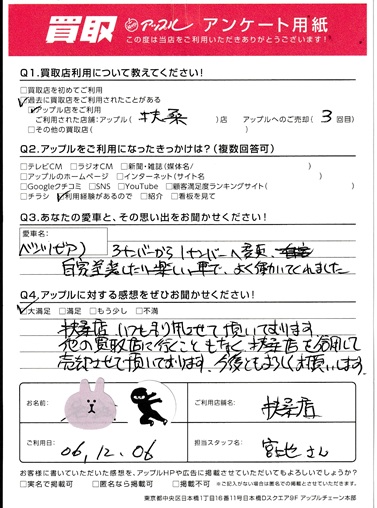 買取 アップル アンケート用紙
この度は当店をご利用いただきありがとうございます!
Q1.買取店利用について教えてください!
□買取店を初めてご利用
☑過去に買取店をご利用されたことがある
☑アップル店をご利用
ご利用された店舗:アップル( 扶桑 )店 アップルへのご売却( 3 回目)
□その他の買取店( )
Q2.アップルをご利用になったきっかけは?(複数回答可)
□テレビCM □ラジオCM □新聞・雑誌(媒体名/ )
□アップルのホームページ □インターネット(サイト名 )
□Googleクチコミ □SNS □YouTube □顧客満足度ランキングサイト( )
□チラシ ☑利用経験があるので □紹介 □看板を見て
Q3.あなたの愛車と、その思い出をお聞かせください!
愛車名:
3ナンバーから1ナンバーへ変更
楽しい車で、よく働いてくれました
Q4.アップルに対する感想をぜひお聞かせください!
☑大満足 □満足 □もう少し □不満
扶桑店 いつも利用させて頂いております。
他の買取店に行くこともなく 扶桑店を信用して
売却させて頂いております。今後ともよろしくお願いします。
お名前: ご利用店舗名: 扶桑店
ご利用日: 06,12,06 担当スタッフ名: 宮地さん
お客様に書いていただいた感想を、アップルHPや広告に掲載させていただいてもよろしいでしょうか?
□実名で掲載可 □匿名なら掲載可 □掲載不可 ※ご記入がない場合は匿名での掲載とさせていただきます。
東京都中央区日本橋1丁目16番11号日本橋Dスクエア9F アップルチェーン本部